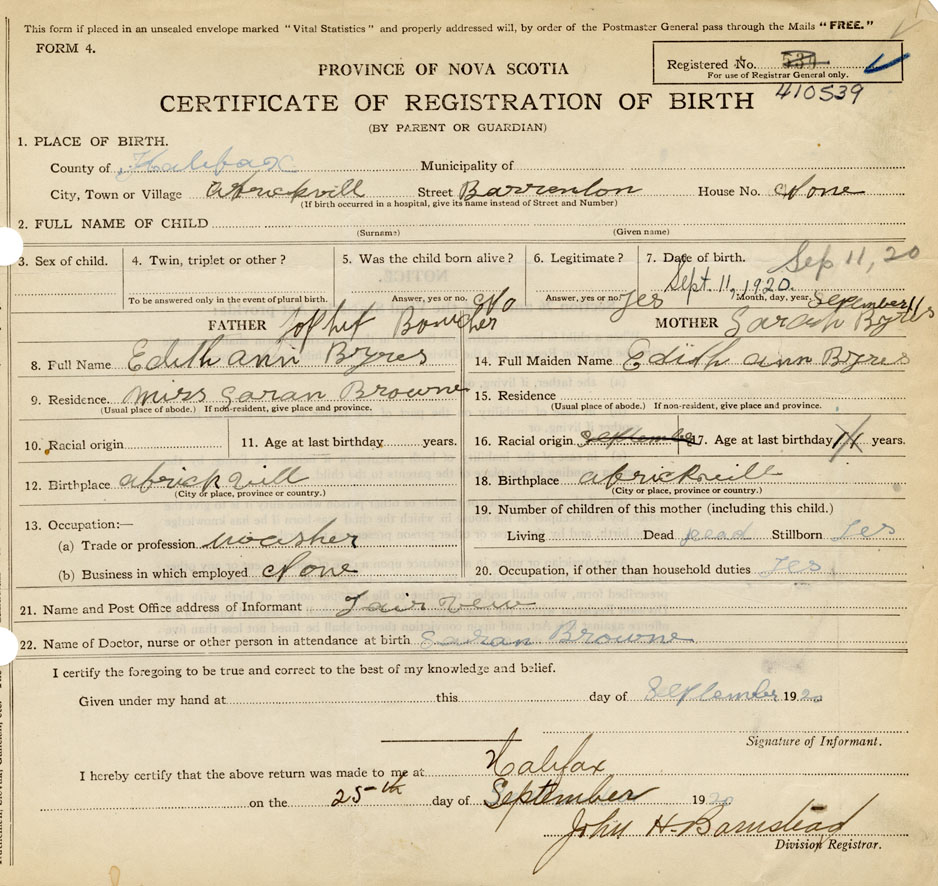 This form if placed in an unsealed envelope marked "Vital Statistics" and properly addressed will, by order of the Postmaster General pass through the Mails "FREE."
FORM 4.
Registered No.
For use of Registrar General only.
410539
PROVINCE OF NOVA SCOTIA
CERTIFICATE OF REGISTRATION OF BIRTH
(BY PARENT OR GUARDIAN)
1. PLACE OF BIRTH.
County of Halifax Municipality of
City, Town or Village Africkvill Street Barrenton House No. None
(If birth occurred in a hospital, give its name instead of Street and Number)
2. FULL NAME OF CHILD
(Surname) (Given name)
3. Sex of child. 4. Twin, triplet or other? 5. Was the child born alive? 6. Legitimate? 7. Date of birth. Sep 11, 20
Sept. 11, 1920.
To be answered only in the event of plural birth. Answer, yes or no. No Answer, yes or no Yes Month, day, year. September 11
FATHER MOTHER Sarah Byres
8. Full Name Edith ann Byres 14. Full Maiden Name Edith ann Byres
9. Residence. Miss Saran Browne 15. Residence
(Usual place of abode.) If non-resident, give place and province. (Usual place of abode.) If non-resident, give place and province.
10. Racial origin 11. Age at last birthday years. 16. Racial origin September 17. Age at last birthday years.
12. Birthplace africkvill 18. Birthplace africkvill
(City or place, province or country.) (City or place, province or country.)
13. Occupation:— 19. Number of children of this mother (including this child.)
(a) Trade or profession washer Living Dead Dead Stillborn Yes
(b) Business in which employed None 20. Occupation, if other than household duties Yes
21. Name and Post Office address of Informant Fairvew
22. Name of Doctor, nurse or other person in attendance at birth Saran Browne
I certify the foregoing to be true and correct to the best of my knowledge and belief.
Given under my hand at this day of September 1920
Signature of Informant.
I hereby certify that the above return was made to me at Halifax
on the 25th day of September 1920
John H. Barnstead
Division Registrar.